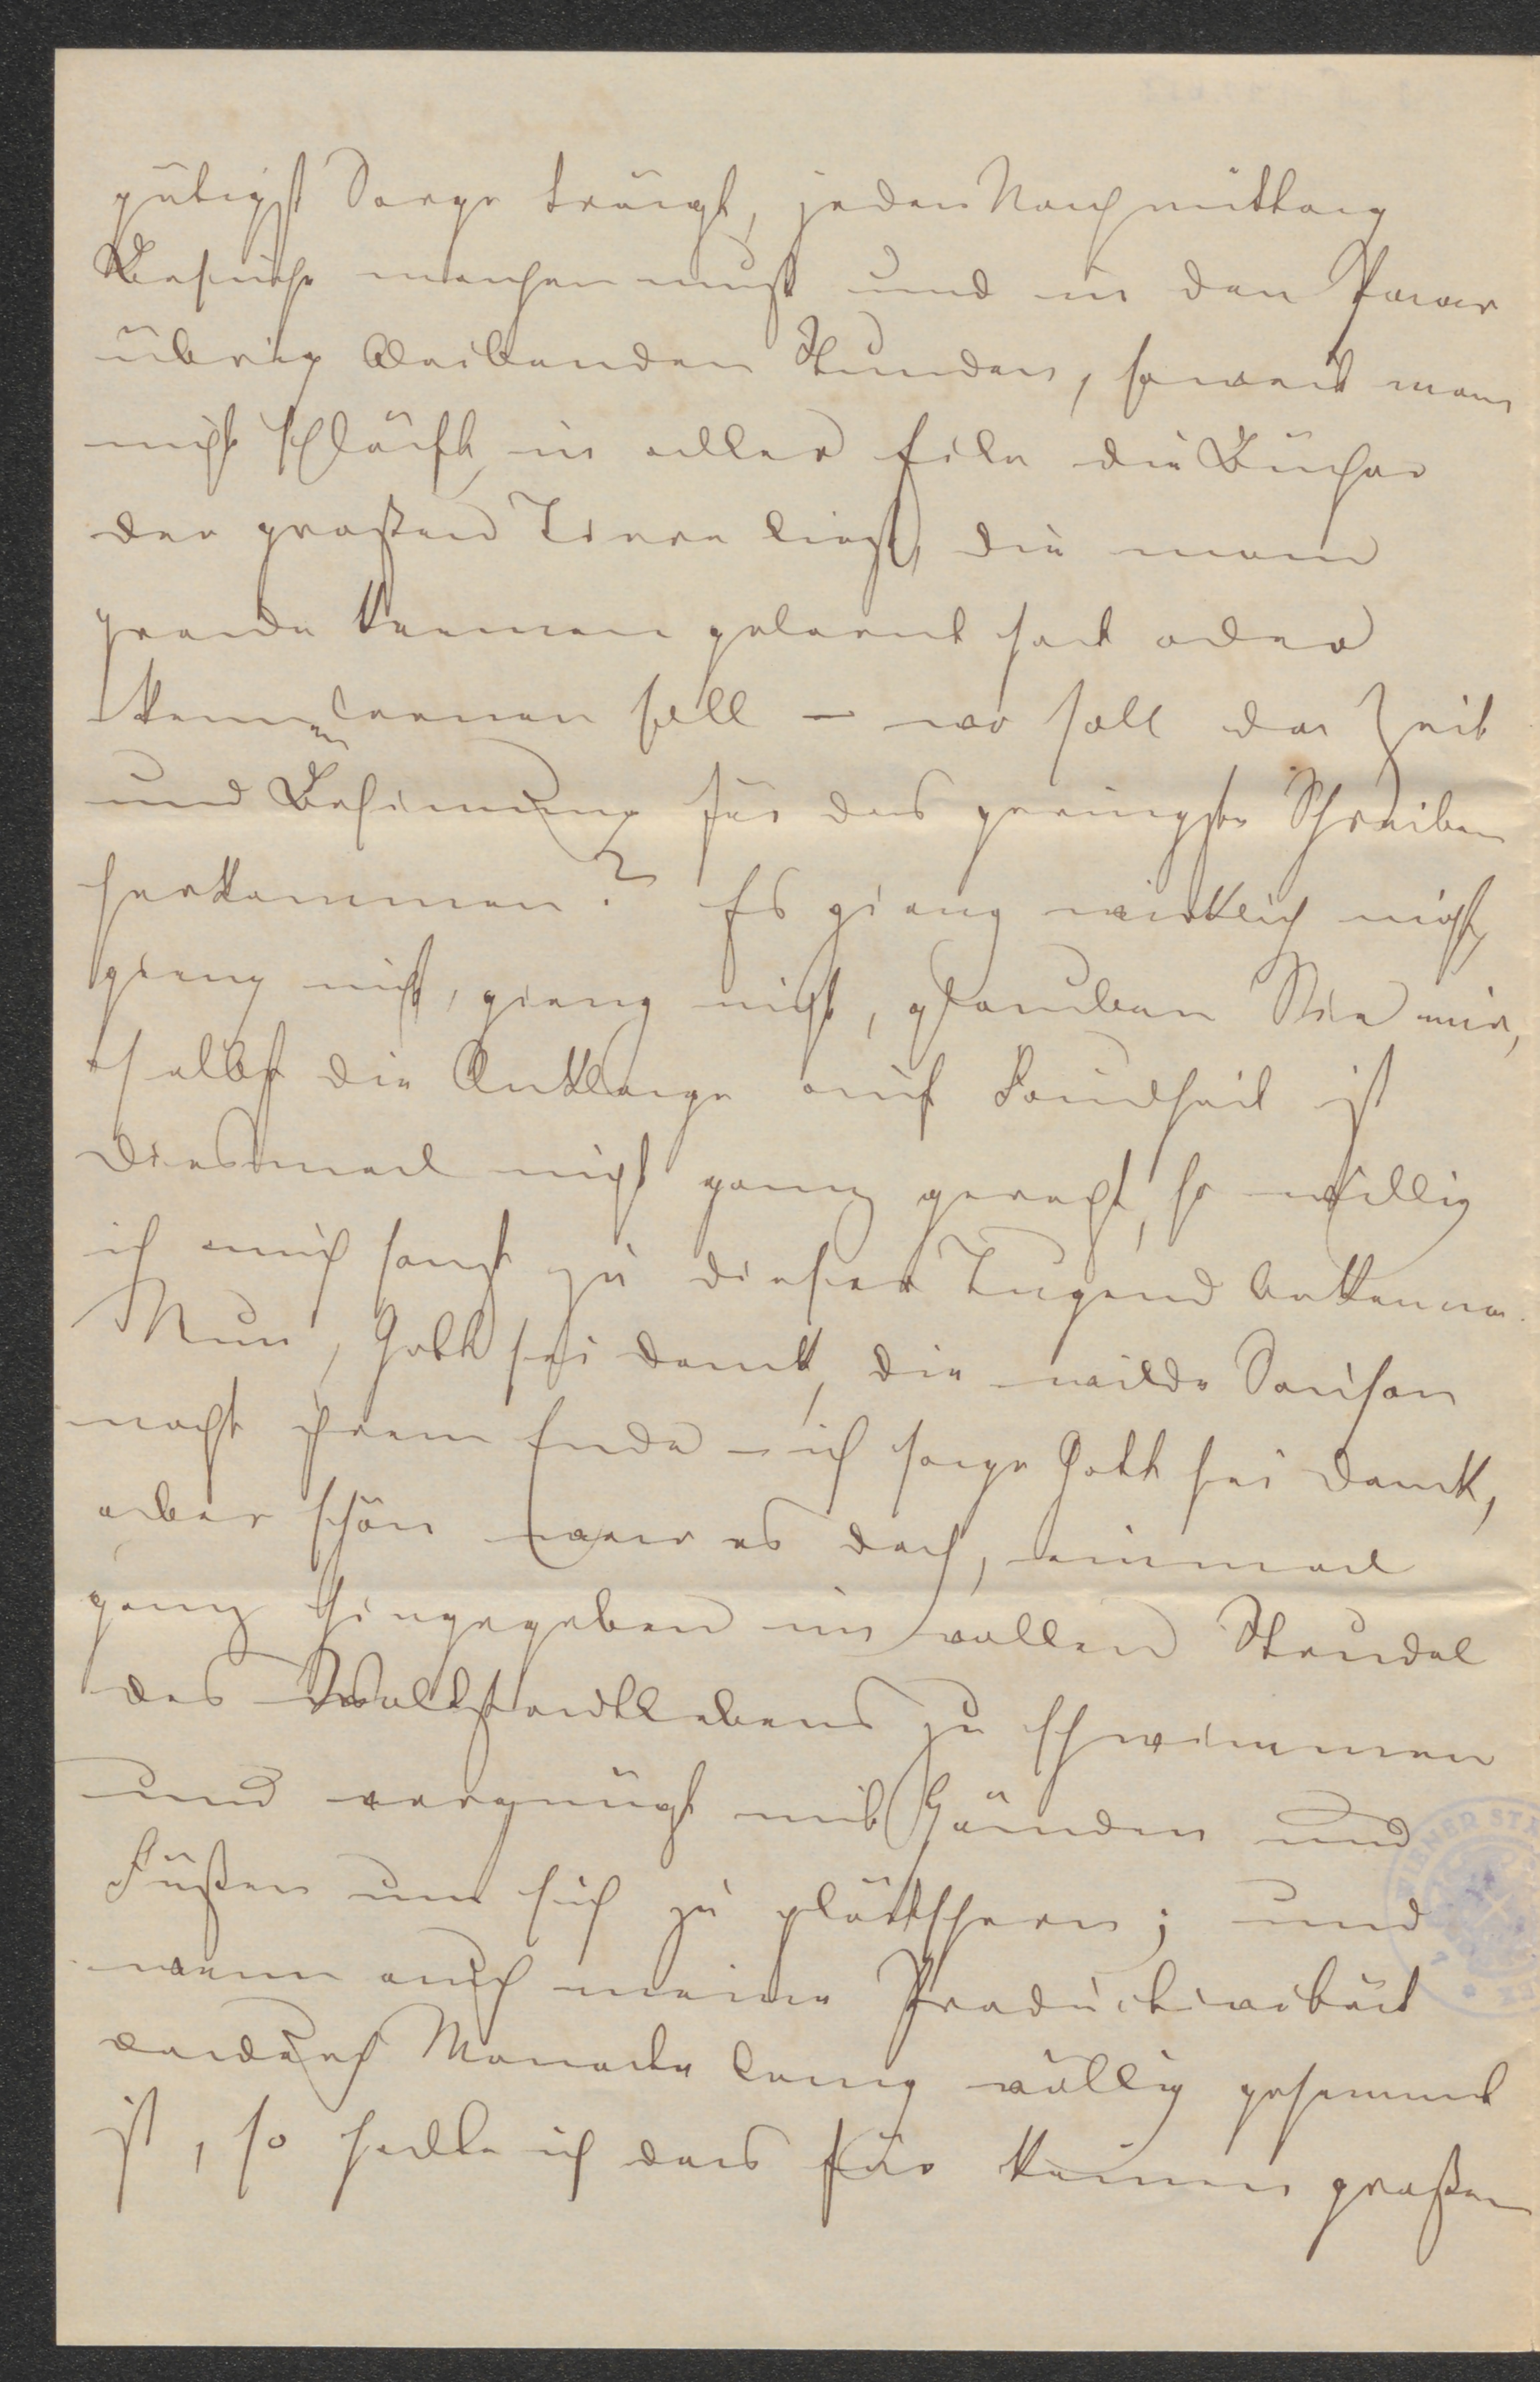 gütigst Sorge trägt, jeden Nachmittag
Besuche machen muß und in den Paar
übrig bleibenden Stunden, soweit man
nicht schläft, in aller Eile die Bücher
der großen Tiere liest, die man
gerade kennen gelernt hat oder
kennen lernen soll – wo soll da Zeit
und Besinnung für das geringste Schreiben
herkommen? Es gieng wirklich nicht,
gieng nicht, gieng nicht, glauben Sie mir,
selbst die Anklage auf Faulheit ist
diesmal nicht ganz gerecht, so willig
ich mich sonst zu dieser Tugend bekenne.
Nun, Gott sei dank, die wilde Saison
naht ihrem Ende – ich sage Gott sei dank,
aber schön war es doch, einmal
ganz hingegeben im vollen Strudel
des Weltstadtlebens zu schwimmen
und vergnügt mit Händen und
Füßen um sich zu plätschern; und
wenn auch meine Productivität
dadurch Monate lang völlig gehemmt
ist, so halte ich das für keinen großen
WIENER STA